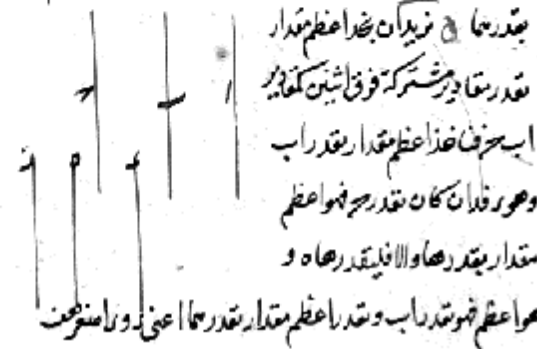 يقدرهما د نريد ان نجد اعظم مقدار
يقدر مقادير مشتركة فوق اثنين كمقادير
اب ح فناخذ اعظم مقدار يقدر اب
وهو ء فان كان يقدر ح فهو اعظم
مقدار يقدرها والا فليقدرها ه و
هو اعظم فهو يقدر اب ويقدر اعظم مقدار يقدرهما اعنى
ا ب ح
ء ه ز